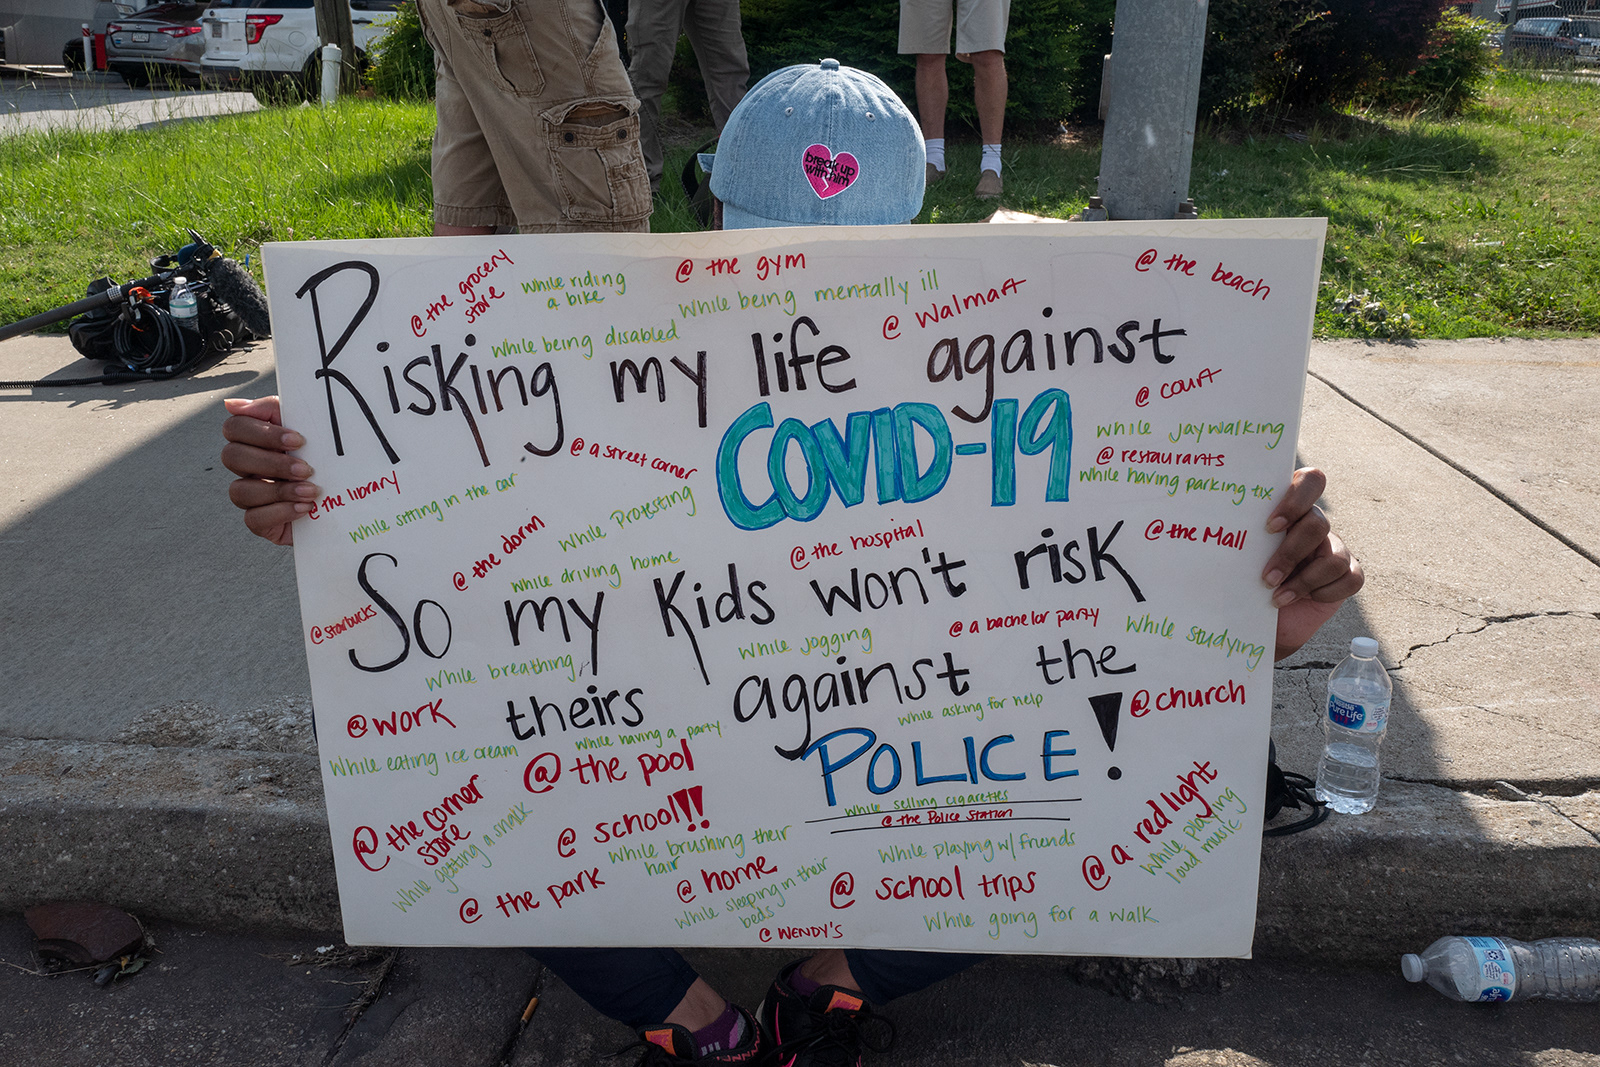 break up
with him
@ the grocery
store
While riding
a bike
@ the gym
@ the beach
While being mentally ill
@ Walmart
While being disabled
Risking my life against
@ court
COVID-19
While jaywalking
@ a street corner
@ restaurants
While having parking tix
@ the library
While sitting in the car
While Protesting
@ the dorm
@ the hospital
@ the Mall
While driving home
So my kids won't risk
@ starbucks
@ a bachelor party
While studying
While jogging
While breathing
theirs against the
@ work
While asking for help
@ church
While having a party
While eating ice cream
@ the pool
POLICE!
While selling cigarettes
@ the Police Station
@ the corner
store
While getting a snack
@ school!!
While brushing their
hair
While playing w/ friends
@ a red light
While playing
loud music
@ the park
@ home
While sleeping in their
beds
@ school trips
@ WENDY'S
While going for a walk
Nestle
Pure Life